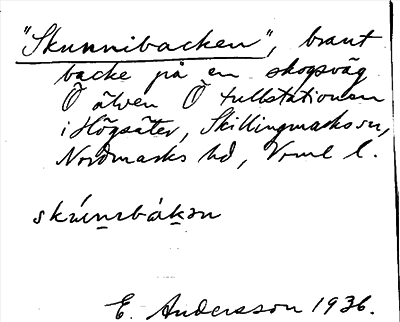 "Skunnibacken", brant
backe på en skogsväg
Ö älven Ö tullstationen
i Högsäter, Skillingmarks sn,
Nordmarks hd, Vrml l.
E. Andersson 1936.